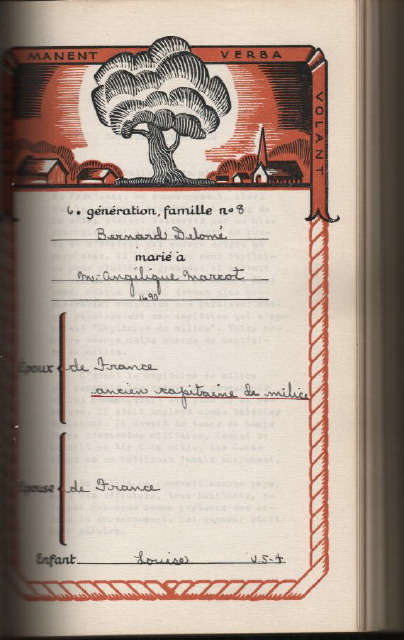 MANENT VERBA
VOLANT
6. génération, famille no 8
Bernard Delomé
marié à
M-Angélique Marcot
1690
Époux de France
ancien capitaine de milice
Épouse de France
Enfant Louise V.5-4